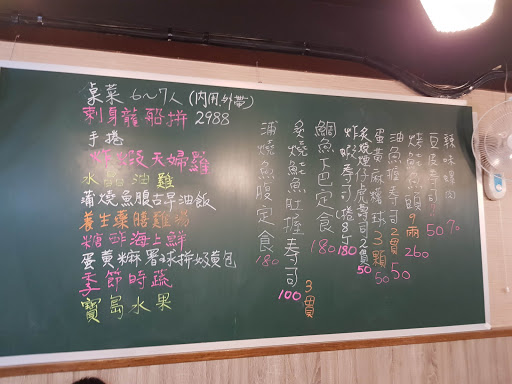 桌菜 6~7人(內用.外帶)
刺身龍船拼 2988
手捲
炸彈天婦羅
水晶油雞
蒲燒魚腹古早油飯
養生藥膳雞湯
糖酢海上鮮
蛋黃麻薯球拼奶黃包
季節時蔬
寶島水果
辣味螺肉 70
豆皮壽司 50
烤鮭魚頭 9兩 260
油魚握壽司 2貫 50
蛋黃麻糬球 3顆 50
炙燒煙仔虎壽司 2貫 50
炸蝦壽司捲8丁 180
鯛魚下巴定食 180
炙燒鮭魚肚握壽司 3貫 100
蒲燒魚腹定食 180